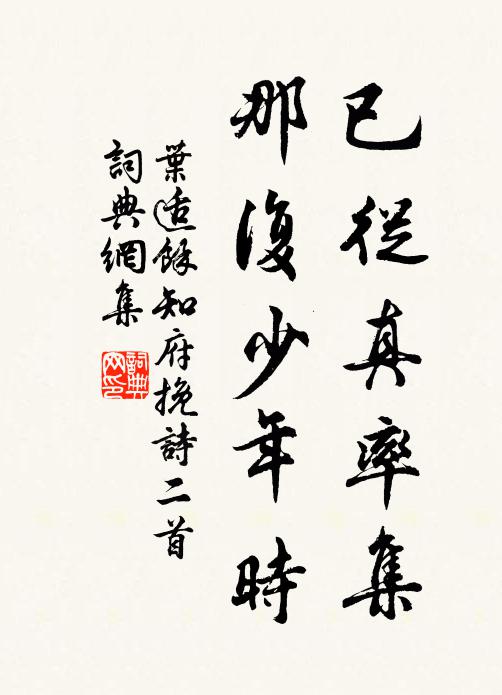 已從真率集
那復少年時
葉適餘知府挽詩二首
詞典網集
詞典网印